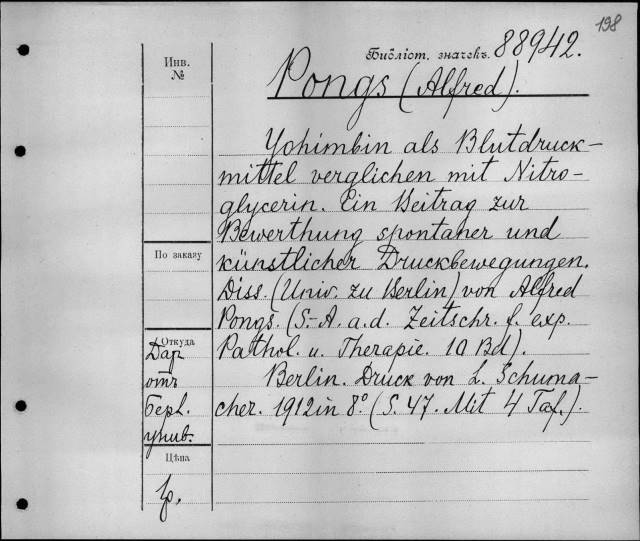 198
Библіот. значекъ. 88942.
Инв.
№
Pongs (Alfred).
Yohimbin als Blutdruck-
mittel verglichen mit Nitro-
glycerin. Ein Beitrag zur
Bewerthung spontaner und
По заказу
künstlicher Druckbewegungen.
Diss. (Univ. zu Berlin) von Alfred
Pongs. (S.-A. a. d. Zeitschr. f. exp.
Откуда
Pathol. u. Therapie. 10 Bd).
Даръ
отъ
Берл.
унив.
Berlin. Druck von L. Schuma-
cher. 1912 in 8° (S. 47. Mit 4 Taf.).
Цѣна
р.